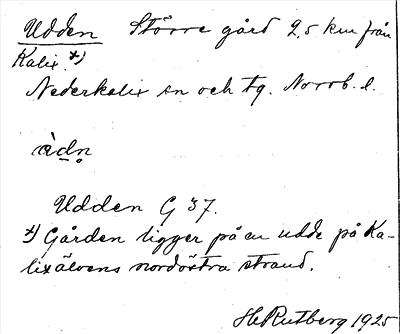 Udden Större gård 2,5 km från
Kalix. *)
Nederkalix sn och tg. Norrb. l.
ùdn̥
Udden G 37.
*) Gården ligger på en udde på Ka-
lixälvens nordöstra strand.
H Rutberg 1925